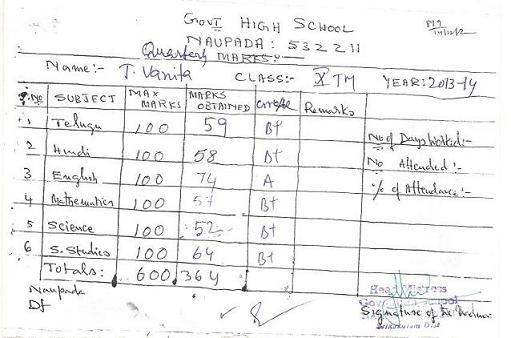 GOVT HIGH SCHOOL
NAUPADA: 532211
Quarterly MARKS:-
Name:- T. Vanita CLASS:- X TM YEAR: 2013-14
S.No SUBJECT MAX MARKS MARKS OBTAINED Remarks
1 Telugu 100 59 B+
No of Days Worked:-
2 Hindi 100 58 B+
No Attended:-
3 English 100 74 A
% of Attendance:-
4 Mathematics 100 57 B+
5 Science 100 52 B+
6 S. Studies 100 64 B+
Totals: 600 364
Naupada
Dt
Head Mistress
Signature of the